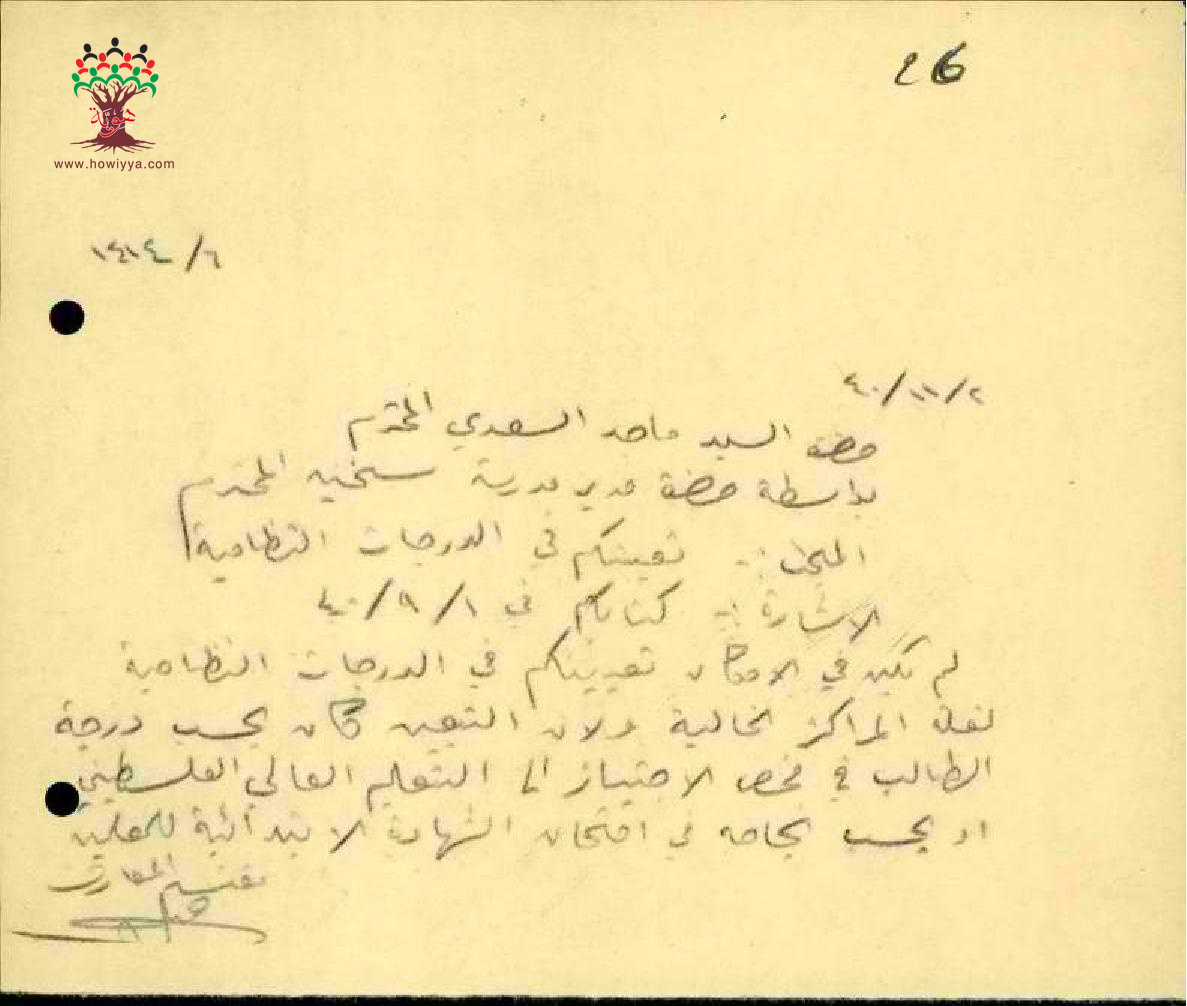 26
هوية
www.howiyya.com
٦/
٢/١١/٤٠
حضرة السيد ماجد السعدي المحترم
بواسطة حضرة مدير مدرسة المحترم
المبحث :- تعيينكم في الدرجات النظامية
الاشارة :- كتابكم في ١/٩/٤٠
لم يكن في الامكان تعيينكم في الدرجات النظامية
لقلة المراكز الخالية ولان التعيين كان بحسب درجة
الطالب في فحص الاجتياز الى التعليم العالي الفلسطيني
او بحسب نجاحه في امتحان الشهادة الابتدائية للمعلمين
مفتش المعارف